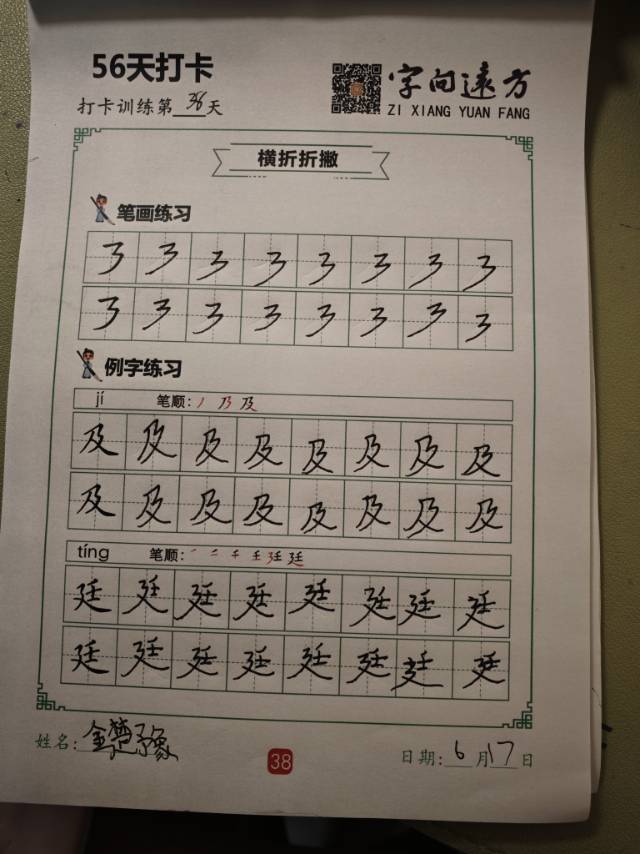 56天打卡
字向远方
打卡训练第36天
ZI XIANG YUAN FANG
横折折撇
笔画练习
㇋ ㇋ ㇋ ㇋ ㇋ ㇋ ㇋ ㇋
㇋ ㇋ ㇋ ㇋ ㇋ ㇋ ㇋ ㇋
例字练习
jí 笔顺: 丿 乃 及
及 及 及 及 及 及 及 及
及 及 及 及 及 及 及 及
tíng 笔顺: ㇒ 二 千 王 廷 廷
廷 廷 廷 廷 廷 廷 廷 廷
廷 廷 廷 廷 廷 廷 廷 廷
姓名: 金 豫
38
日期: 6月17日